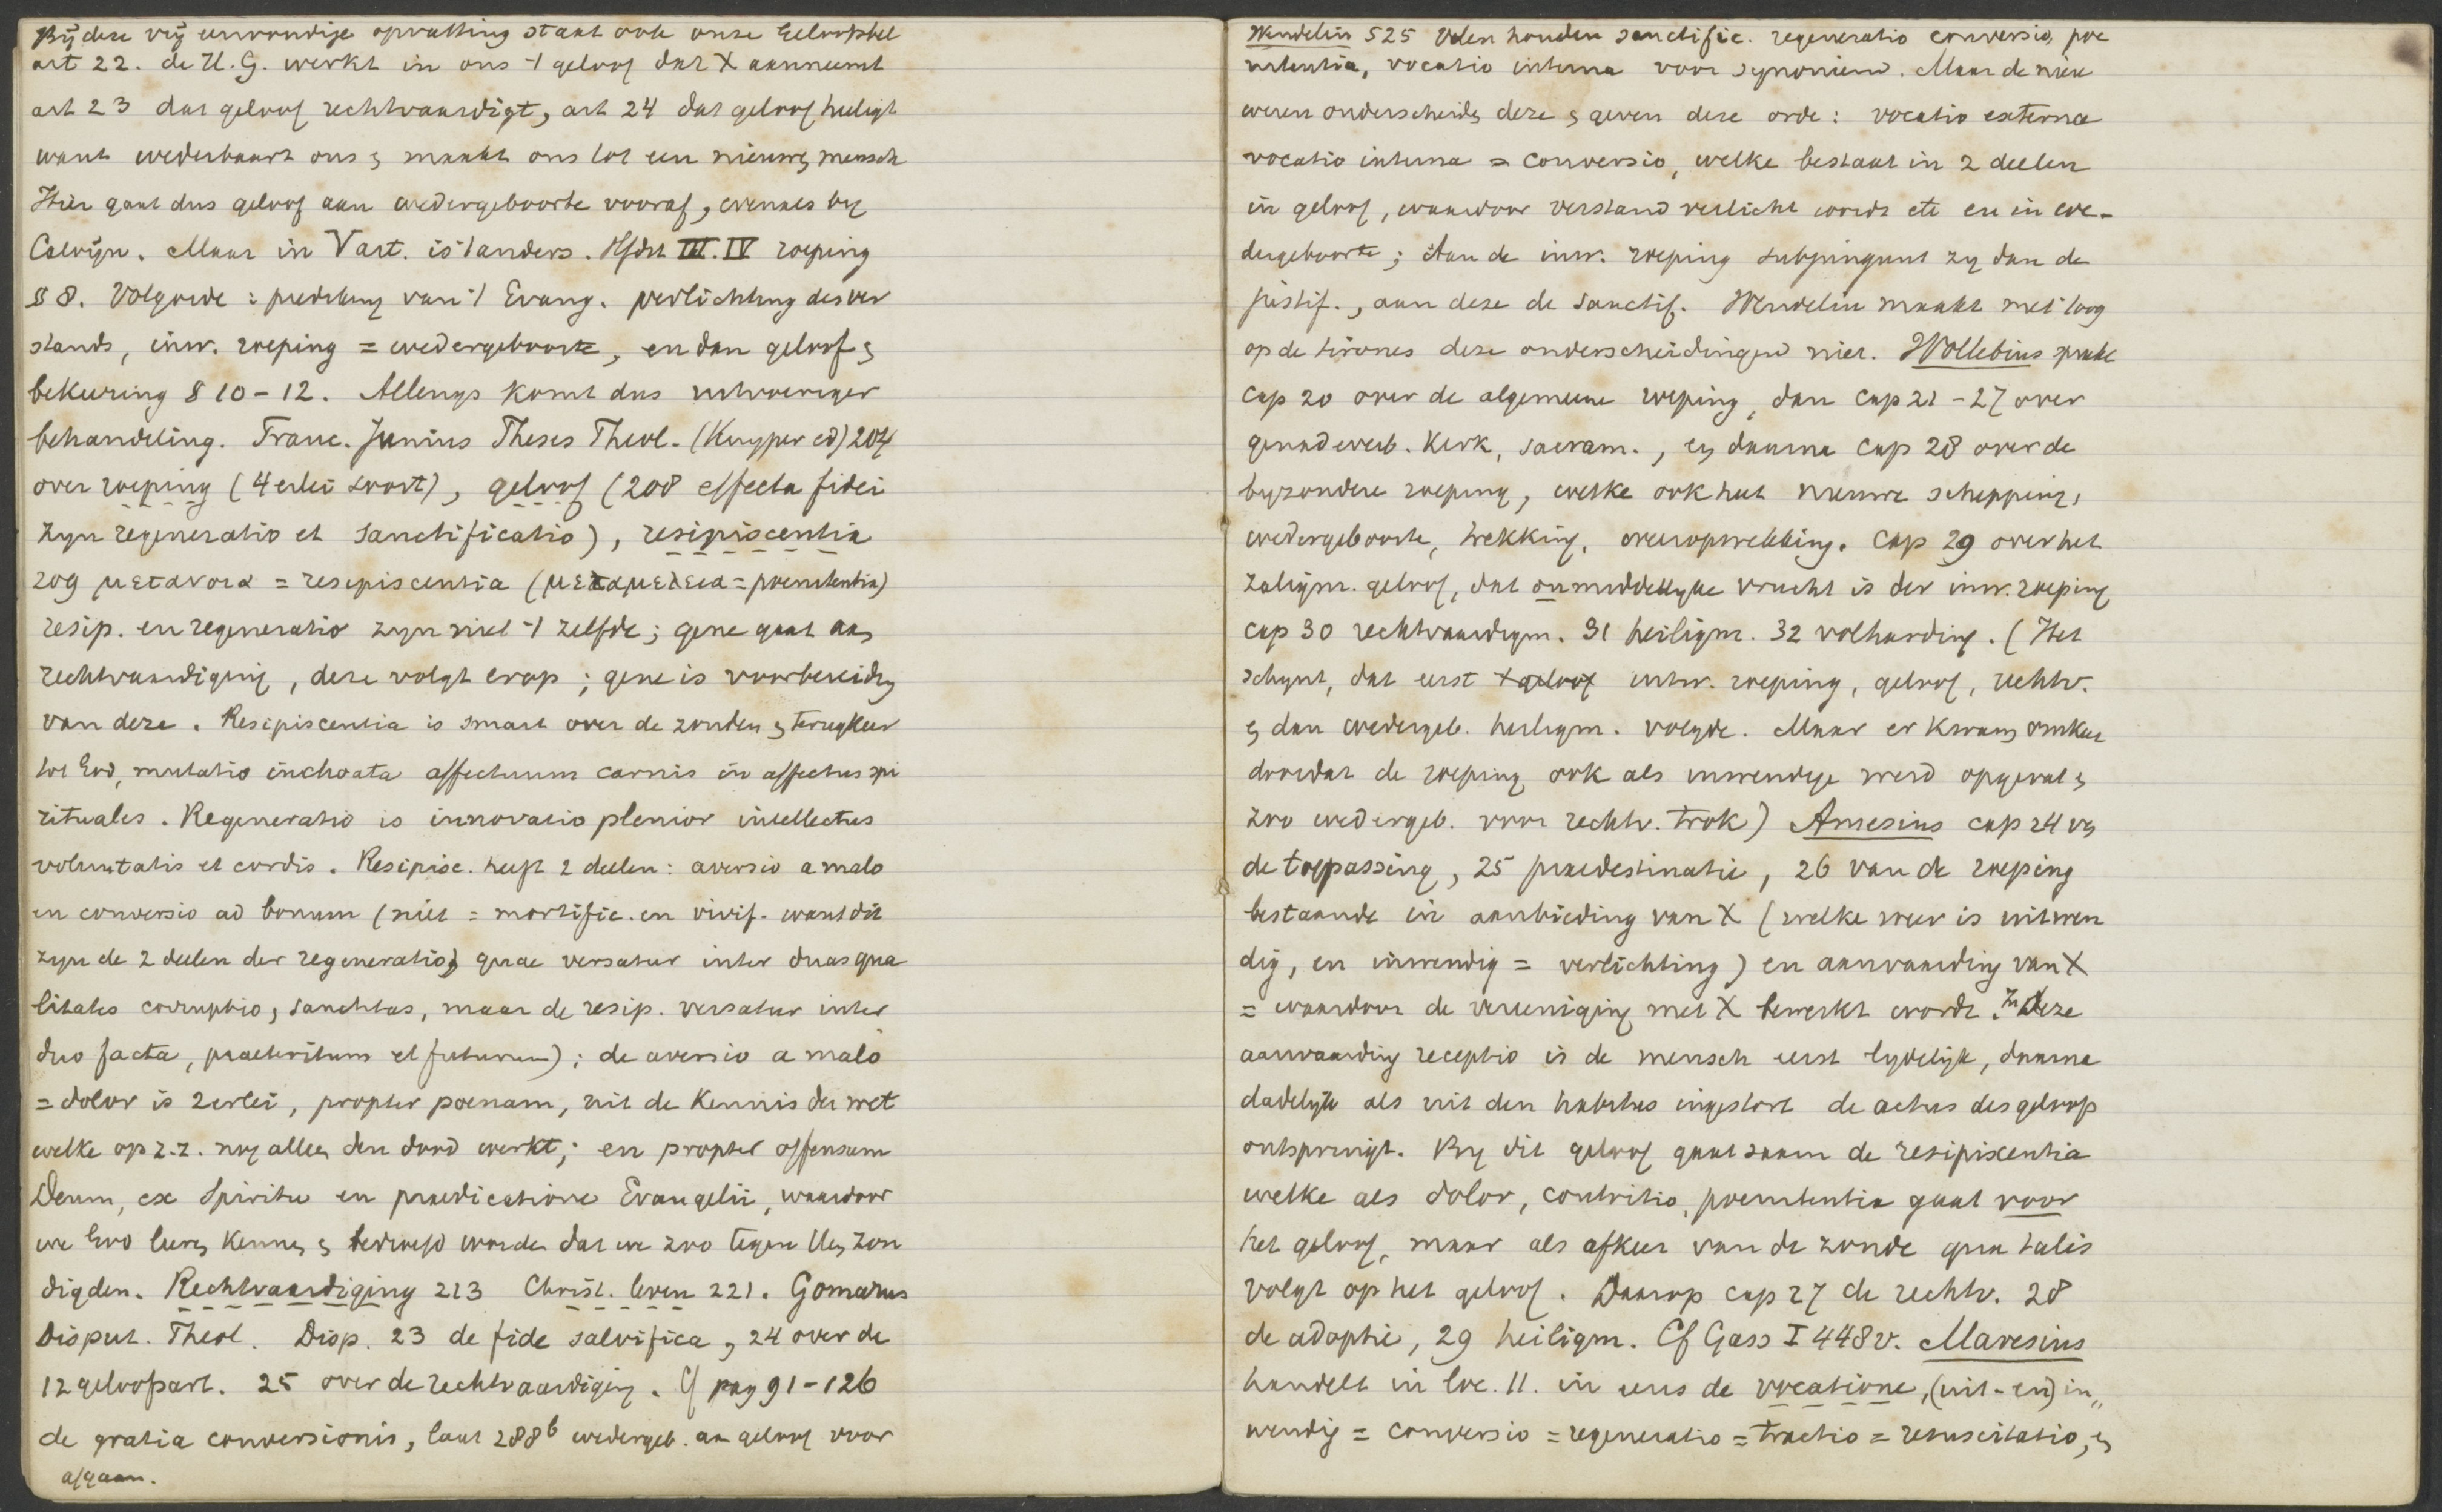 Bij deze vrij eenvoudige opvatting staat ook onze Geloofsbel
art 22. de H.G. werkt in ons 't geloof dat X aanneemt
art 23 dat geloof rechtvaardigt, art 24 dat geloof heiligt
want wederbaart ons en maakt ons tot een nieuwen mensch
Hier gaat dus geloof aan wedergeboorte vooraf, evenals by
Calvijn. Maar in Vart. is 't anders. Hfdst III. IV roeping
§ 8. Volgorde: prediking van 't Evang. verlichting des ver
stands, inw. roeping = wedergeboorte, en dan geloof en
bekeering § 10-12. Allengs komt dus uitvoeriger
behandeling. Franc. Junius Theses Theol. (Kuyper ed) 204
over roeping (4 erlei soort), geloof (208 effecta fidei
zyn regeneratio et sanctificatio), resipiscentia
209 μετανοια = resipiscentia (μεταμελεια = poenitentia)
resip. en regeneratio zyn niet 't zelfde; gene gaat aan
rechtvaardiging, deze volgt erop; gene is voorbereiding
van deze. Resipiscentia is smart over de zonden en terugkeer
tot God, mutatio inchoata affectuum carnis in affectus spi
rituales. Regeneratio is innovatio plenior intellectus
voluntatis et cordis. Resipisc. heeft 2 deelen: aversio a malo
en conversio ad bonum (niet = mortific. en vivif. want dit
zyn de 2 deelen der regeneratio, quae versatur inter duas qua
litates corruptio, sanctitas, maar de resip. versatur inter
duo facta, praeteritum et futurum); de aversio a malo
= dolor is 2erlei, propter poenam, uit de kennis der wet
welke op z.z. nog alleen den dood werkt; en propter offensum
Deum, ex Spiritu en praedicatione Evangelii, waardoor
we God leeren kennen en bedroefd worden dat we zoo tegen Hem zon
digden. Rechtvaardiging 213 Christ. leven 221. Gomarus
Disput. Theol. Disp. 23 de fide salvifica, 24 over de
12 geloofsart. 25 over de rechtvaardiging. Cf pag 91-126
de gratia conversionis, laat 288b wedergeb. aan geloof voor
afgaan.
Wendelin 525 Velen houden sanctific. regeneratio conversio, poe
nitentia, vocatio interna voor synoniem. Maar de nieu
weren onderscheiden deze en geven deze orde: vocatio externa
vocatio interna = conversio, welke bestaat in 2 deelen
in geloof, waardoor verstand verlicht wordt etc en in we-
dergeboorte; Aan de inw. roeping subjungunt zy dan de
justif., aan deze de sanctif. Wendelin maakt met 't oog
op de tirones deze onderscheidingen niet. Wollebius spreekt
cap 20 over de algemeene roeping, dan cap 21-27 over
genadeverb. Kerk, sacram., en daarna cap 28 over de
byzondere roeping, welke ook heet nieuwe schepping,
wedergeboorte, trekking, . Cap 29 over het
zaligm. geloof, dat onmiddellyke vrucht is der inw. roeping
cap 30 rechtvaardigm. 31 heiligm. 32 volharding. (Het
schynt, dat eerst geloof uitw. roeping, geloof, rechtv.
en dan wedergeb. heiligm. volgde. Maar er kwam omkeer
doordat de roeping ook als inwendige werd opgevat en
zoo wedergeb. voor rechtv. trok) Amesius cap 24 van
de toepassing, 25 praedestinatie, 26 van de roeping
bestaande in aanbieding van X (welke weer is uitwen
dig, en inwendig = verlichting) en aanvaarding van X
= waardoor de vereeniging met X bewerkt wordt. In deze
aanvaarding receptio is de mensch eerst lydelijk, daarna
dadelyk als uit den habitus ingestort de actus des geloofs
ontspringt. By dit geloof gaat saam de resipiscentia
welke als dolor, contritio, poenitentia gaat voor
het geloof, maar als afkeer van de zonde qua talis
volgt op het geloof. Daarop cap 27 de rechtv. 28
de adoptie, 29 heiligm. Cf Gass I 448v. Maresius
handelt in loc. 11. in eens de vocatione, (uit- en) in„
wendig = conversio = regeneratio = tractio = resuscitatio, en